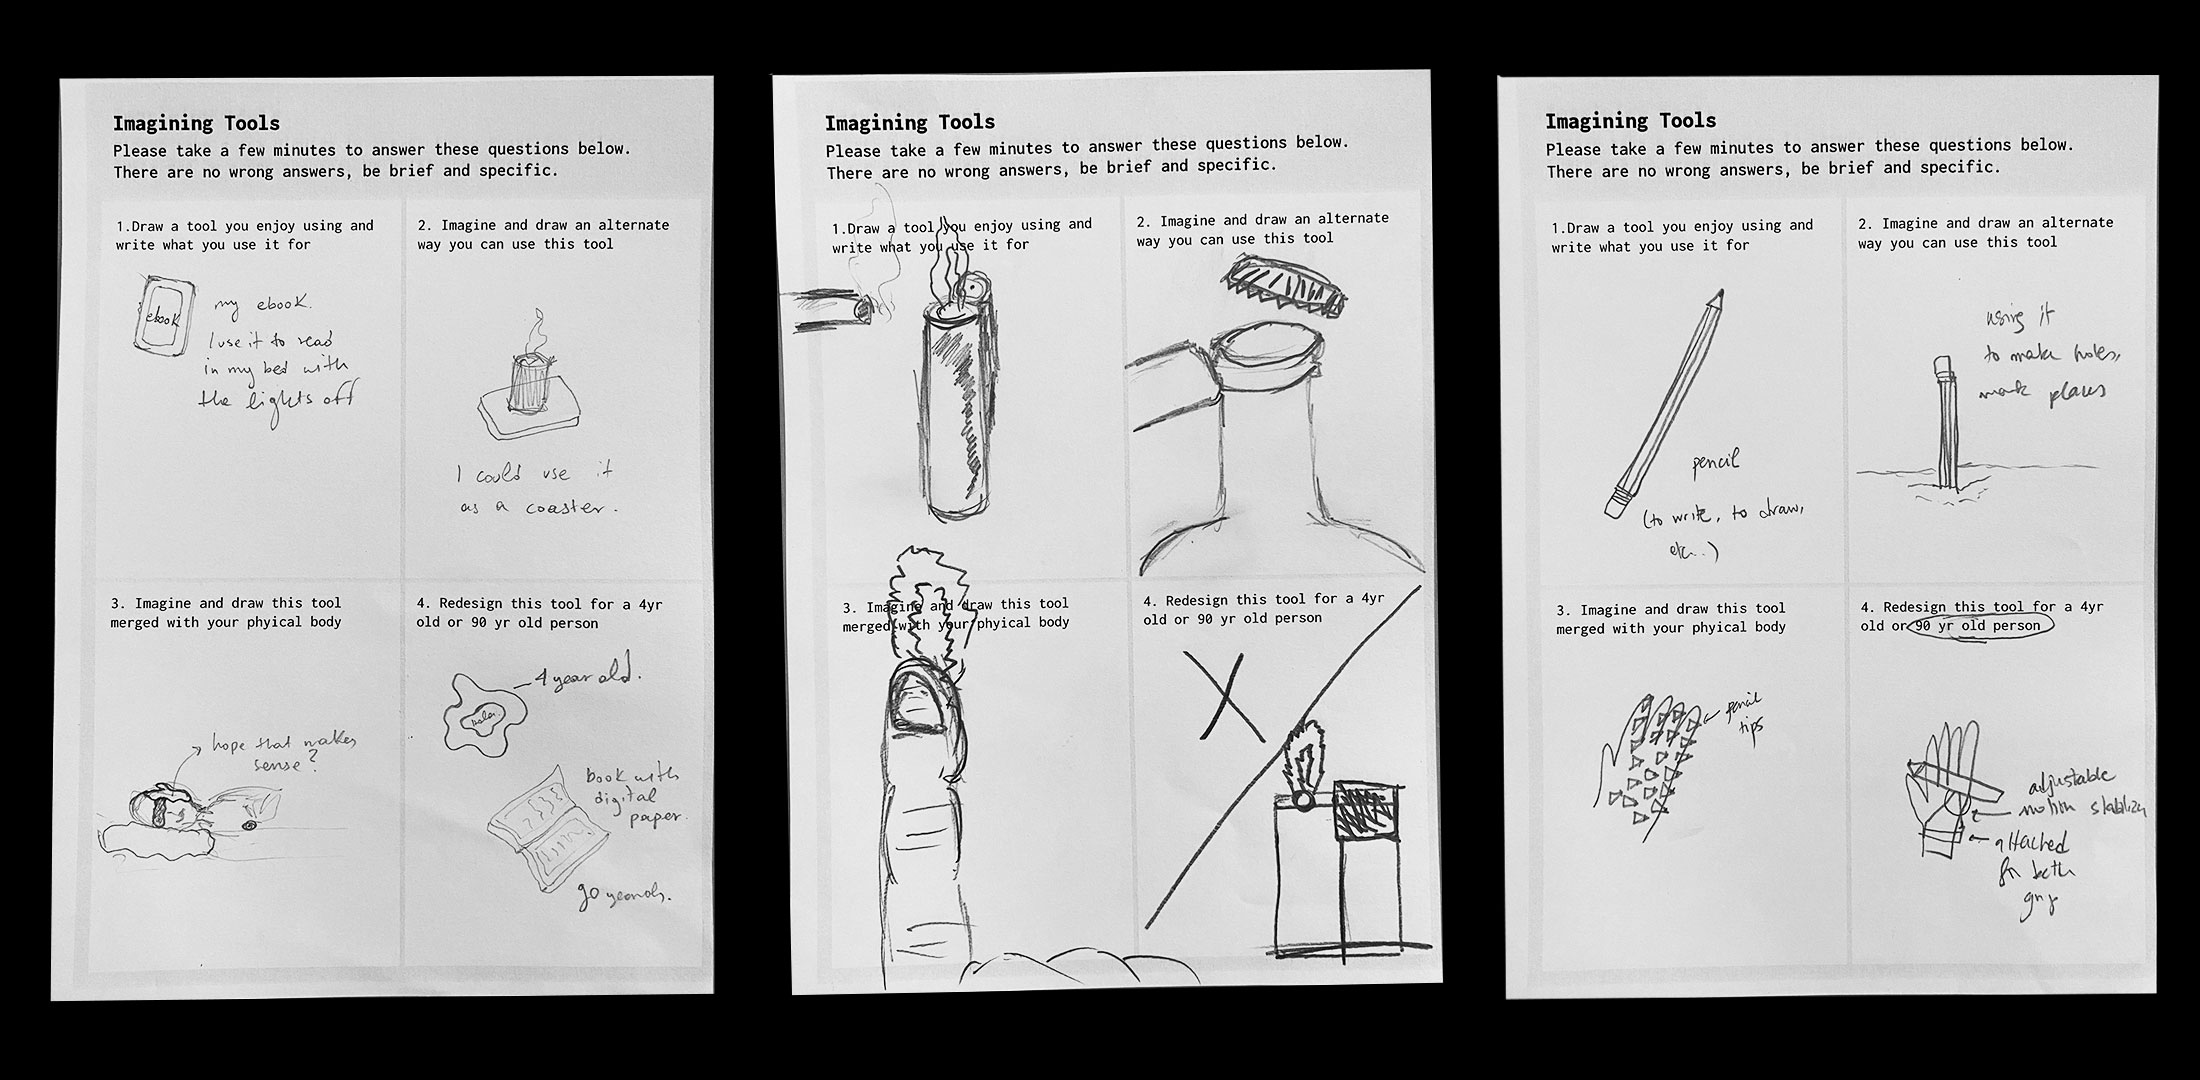 Imagining Tools
Please take a few minutes to answer these questions below.
There are no wrong answers, be brief and specific.
1.Draw a tool you enjoy using and
write what you use it for
ebook
my ebook.
I use it to read
in my bed with
the lights off
2. Imagine and draw an alternate
way you can use this tool
I could use it
as a coaster.
3. Imagine and draw this tool
merged with your phyical body
hope that makes
sense?
4. Redesign this tool for a 4yr
old or 90 yr old person
4 year old.
book with
digital
paper.
Imagining Tools
Please take a few minutes to answer these questions below.
There are no wrong answers, be brief and specific.
1.Draw a tool you enjoy using and
write what you use it for
2. Imagine and draw an alternate
way you can use this tool
3. Imagine and draw this tool
merged with your phyical body
4. Redesign this tool for a 4yr
old or 90 yr old person
Imagining Tools
Please take a few minutes to answer these questions below.
There are no wrong answers, be brief and specific.
1.Draw a tool you enjoy using and
write what you use it for
pencil
(to write, to draw,
etc..)
2. Imagine and draw an alternate
way you can use this tool
using it
to make holes,
mark places
3. Imagine and draw this tool
merged with your phyical body
pencil
tips
4. Redesign this tool for a 4yr
old or 90 yr old person
adjustable
motion
attached
for